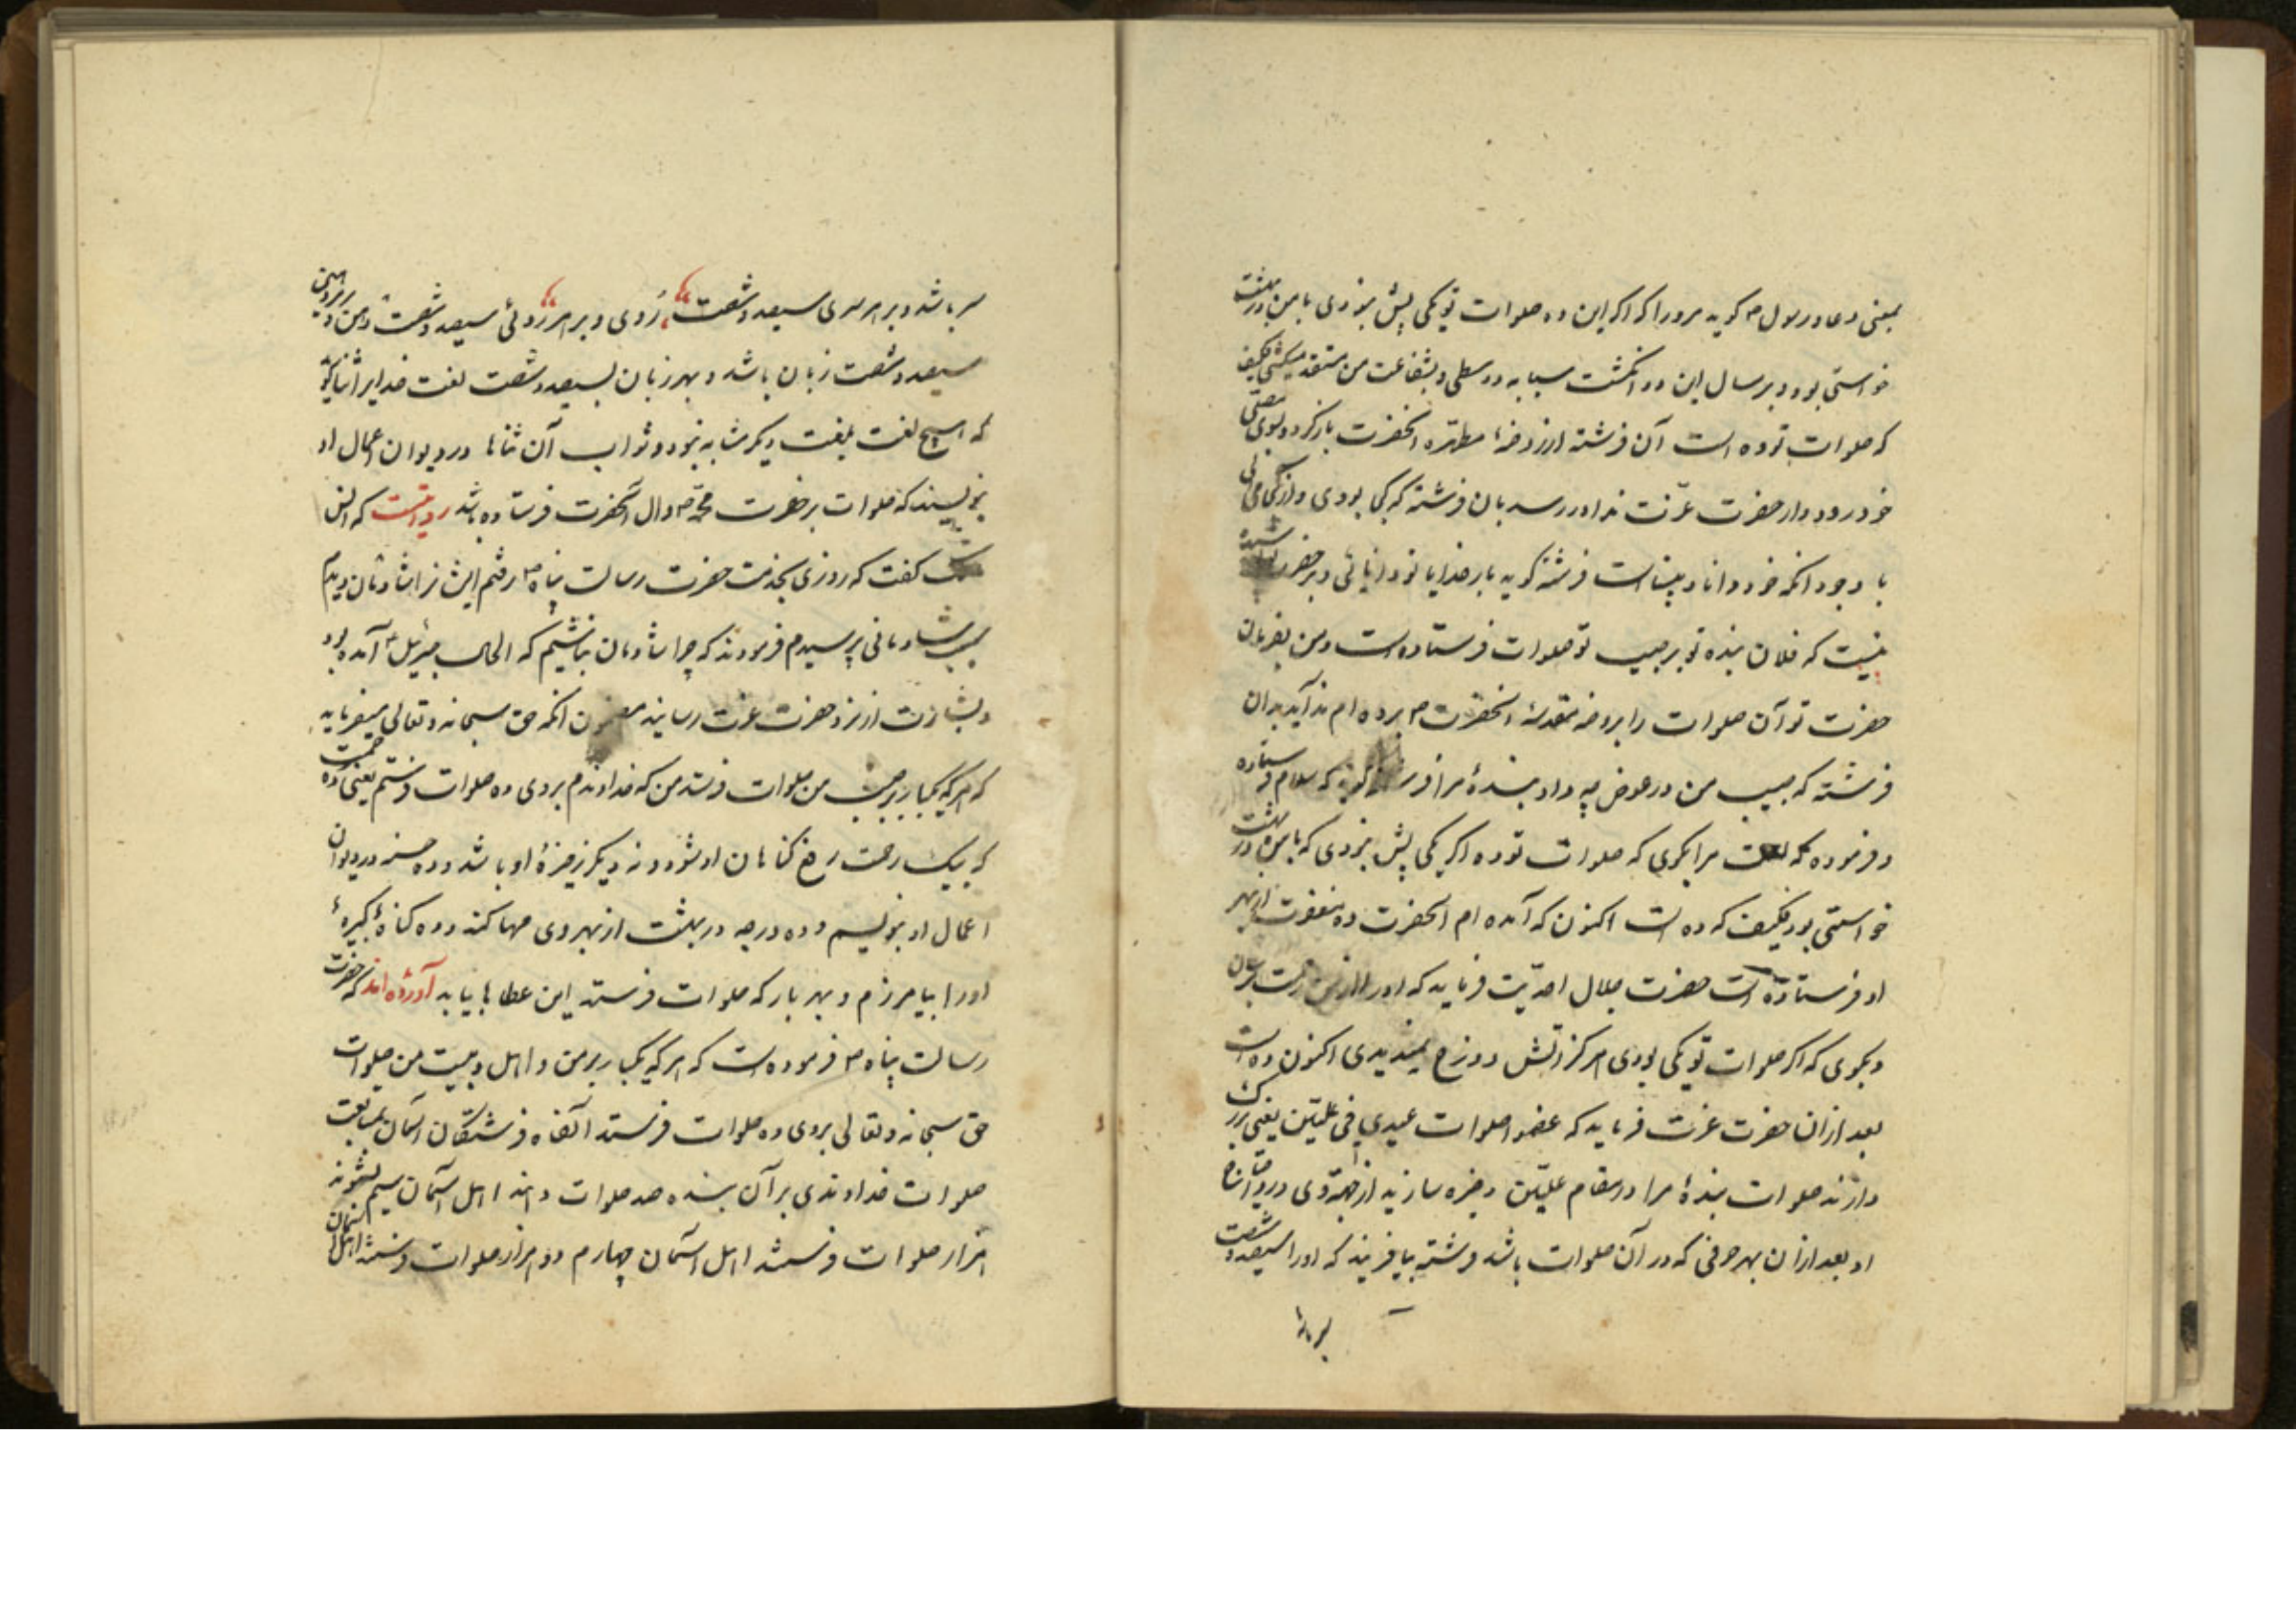 یعنی دعا و رسول م گوید مرورا که اگر این ده صلوات تو یکی پیش نبودی با من در بهشت
خواستی بود و بر مثال این دو انگشت سبابه و وسطی و بشفاعت من
که صلوات تو ده است آن فرشته از روضهٔ مطهره آنحضرت باز گردد و بسوی
خود رود و از حضرت عزت ندا در رسد بان فرشته که کجا بودی و از کجا می آئی
با وجود آنکه خود دانا و بیناست فرشته گوید بار خدایا تو دانائی و بر حضرت
نیست که فلان بنده تو بر حبیب تو صلوات فرستاده است و من بفرمان
حضرت تو آن صلوات را بروضه مقدسهٔ آنحضرت م برده ام ندا آید بدان
فرشته که حبیب من در عوض چه داد بندهٔ مرا گوید که سلام فرستاده
و فرموده که مرا بگوی که صلوات تو ده اگر یکی پیش نبودی که با من در بهشت
خواستی بود فکیف که ده است اکنون که آمده ام آنحضرت ده از بهر
او فرستاده است حضرت جلال احدیت فرماید که او را از من برسان
و بگوی که اگر صلوات تو یکی بودی هرگز آتش دوزخ نمیدیدی اکنون ده است
بعد از آن حضرت عزت فرماید که عظموا صلوات عبدی فی علیین یعنی بزرگ
دارند صلوات بندهٔ مرا در مقام علیین و ذخیره سازید از جهة وی
و بعد از آن بهر حرفی که در آن صلوات باشد فرشته بیافریند که او را سیصد و شصت
سر باشد و بر هر سری سیصد و شصت روی و بر هر روئی سیصد و شصت دهن و در هر دهنی
سیصد و شصت زبان باشد و بهر زبان بسیصد و شصت لغت خدایرا ثنا گوید
که هیچ لغت بلغت دیگر مشابه نبود و ثواب آن ثناها در دیوان اعمال او
نویسند که صلوات بر حضرت محمد ص و آل آنحضرت فرستاده باشد روایتست که انس
مالک گفت که روزی بخدمت حضرت رسالت پناه م رفتم ایشانرا شادمان دیدم
سبب شادمانی پرسیدم فرمودند که چرا شادمان نباشیم که الحال جبرئیل م آمده بود
و بشارت از نزد حضرت عزت رسانید مضمون آنکه حق سبحانه و تعالی میفرماید
که هر که یکبار بر حبیب من صلوات فرستد من که خداوندم بر وی ده صلوات فرستم یعنی ده رحمت
که بیک رحمت رفع گناهان او شود و نه دیگر ذخیرهٔ او باشد و ده حسنه در دیوان
اعمال او بنویسم و ده درجه در بهشت از بهر وی مهیا کند و ده گناه کبیرهٔ
او را بیامرزم و بهر بار که صلوات فرستد این عطاها بیابد آورده اند که حضرت
رسالت پناه م فرموده است که هر که یکبار بر من و اهل بیت من صلوات
حق سبحانه و تعالی بر وی ده صلوات فرستد آنگاه فرشتگان آسان بمتابعت
صلوات خداوندی بر آن بنده صد صلوات دهند اهل آسمان سیم بشنوند
هزار صلوات فرستند اهل آسمان چهارم دو هزار صلوات فرستند اهل آسمان